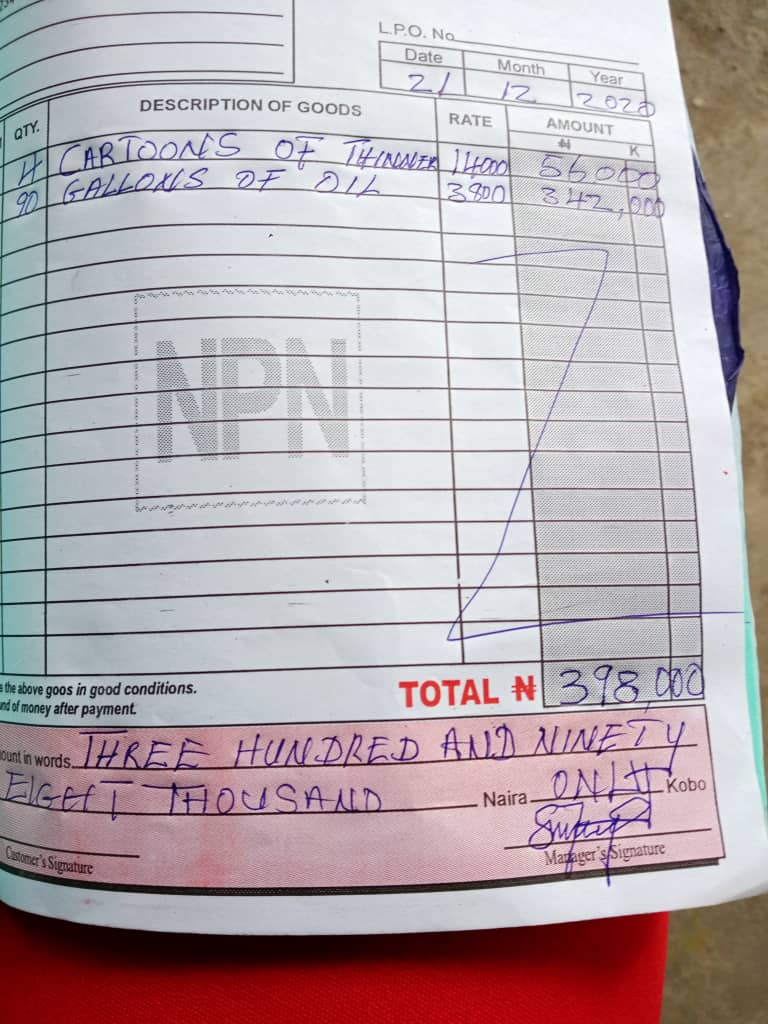 L.P.O. No
Date Month Year
21 12 2020
QTY. DESCRIPTION OF GOODS RATE AMOUNT
₦ K
4 CARTOONS OF THINNER 14000 56000
90 GALLONS OF OIL 3800 342,000
NPN
the above goos in good conditions.
nd of money after payment.
TOTAL ₦ 398,000
ount in words. THREE HUNDRED AND NINETY
EIGHT THOUSAND Naira ONLY Kobo
Customer's Signature Manager's Signature